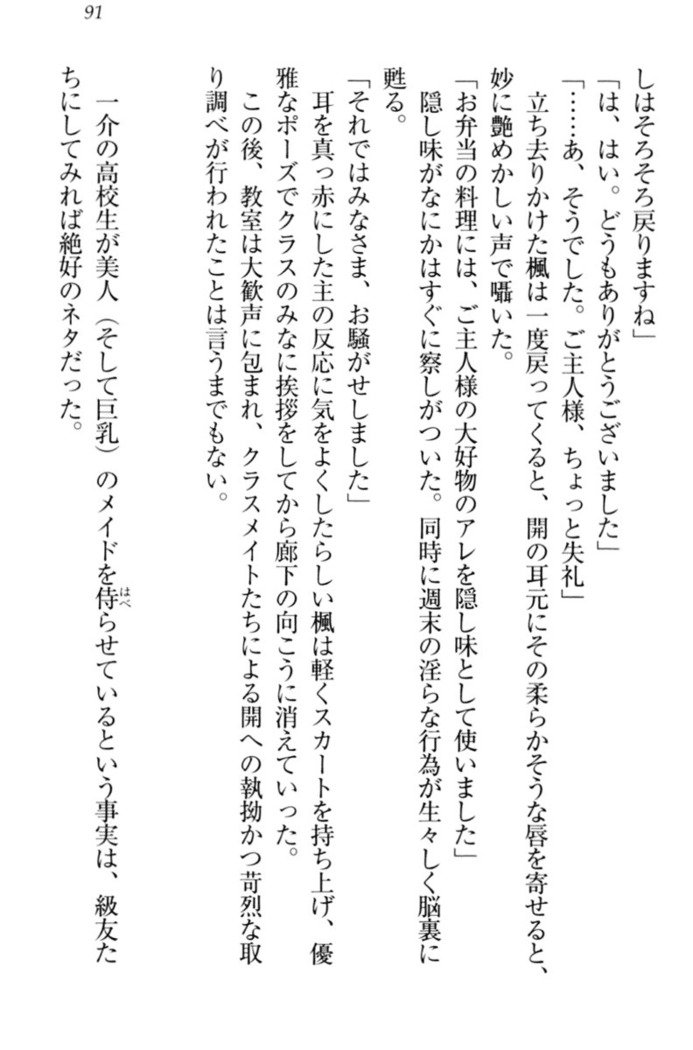 91
しはそろそろ戻りますね」
「は、はい。どうもありがとうございました」
「……あ、そうでした。ご主人様、ちょっと失礼」
立ち去りかけた楓は一度戻ってくると、開の耳元にその柔らかそうな唇を寄せると、
妙に艶めかしい声で囁いた。
「お弁当の料理には、ご主人様の大好物のアレを隠し味として使いました」
隠し味がなにかはすぐに察しがついた。同時に週末の淫らな行為が生々しく脳裏に
甦る。
「それではみなさま、お騒がせしました」
耳を真っ赤にした主の反応に気をよくしたらしい楓は軽くスカートを持ち上げ、優
雅なポーズでクラスのみなに挨拶をしてから廊下の向こうに消えていった。
この後、教室は大歓声に包まれ、クラスメイトたちによる開への執拗かつ苛烈な取
り調べが行われたことは言うまでもない。
一介の高校生が美人（そして巨乳）のメイドを侍らせているという事実は、級友た
はべ
ちにしてみれば絶好のネタだった。